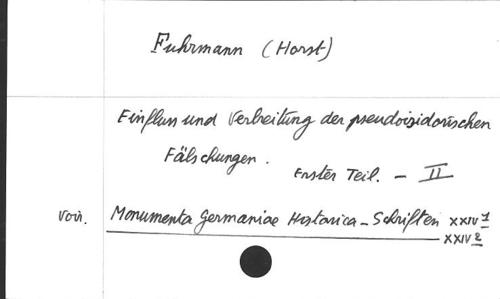 Fuhrmann (Horst)
Einfluss und Verbreitung der pseudoisidorischen
Fälschungen.
Erster Teil. - II
Voir. Monumenta Germaniae Historica - Schriften XXIV 1
XXIV 2